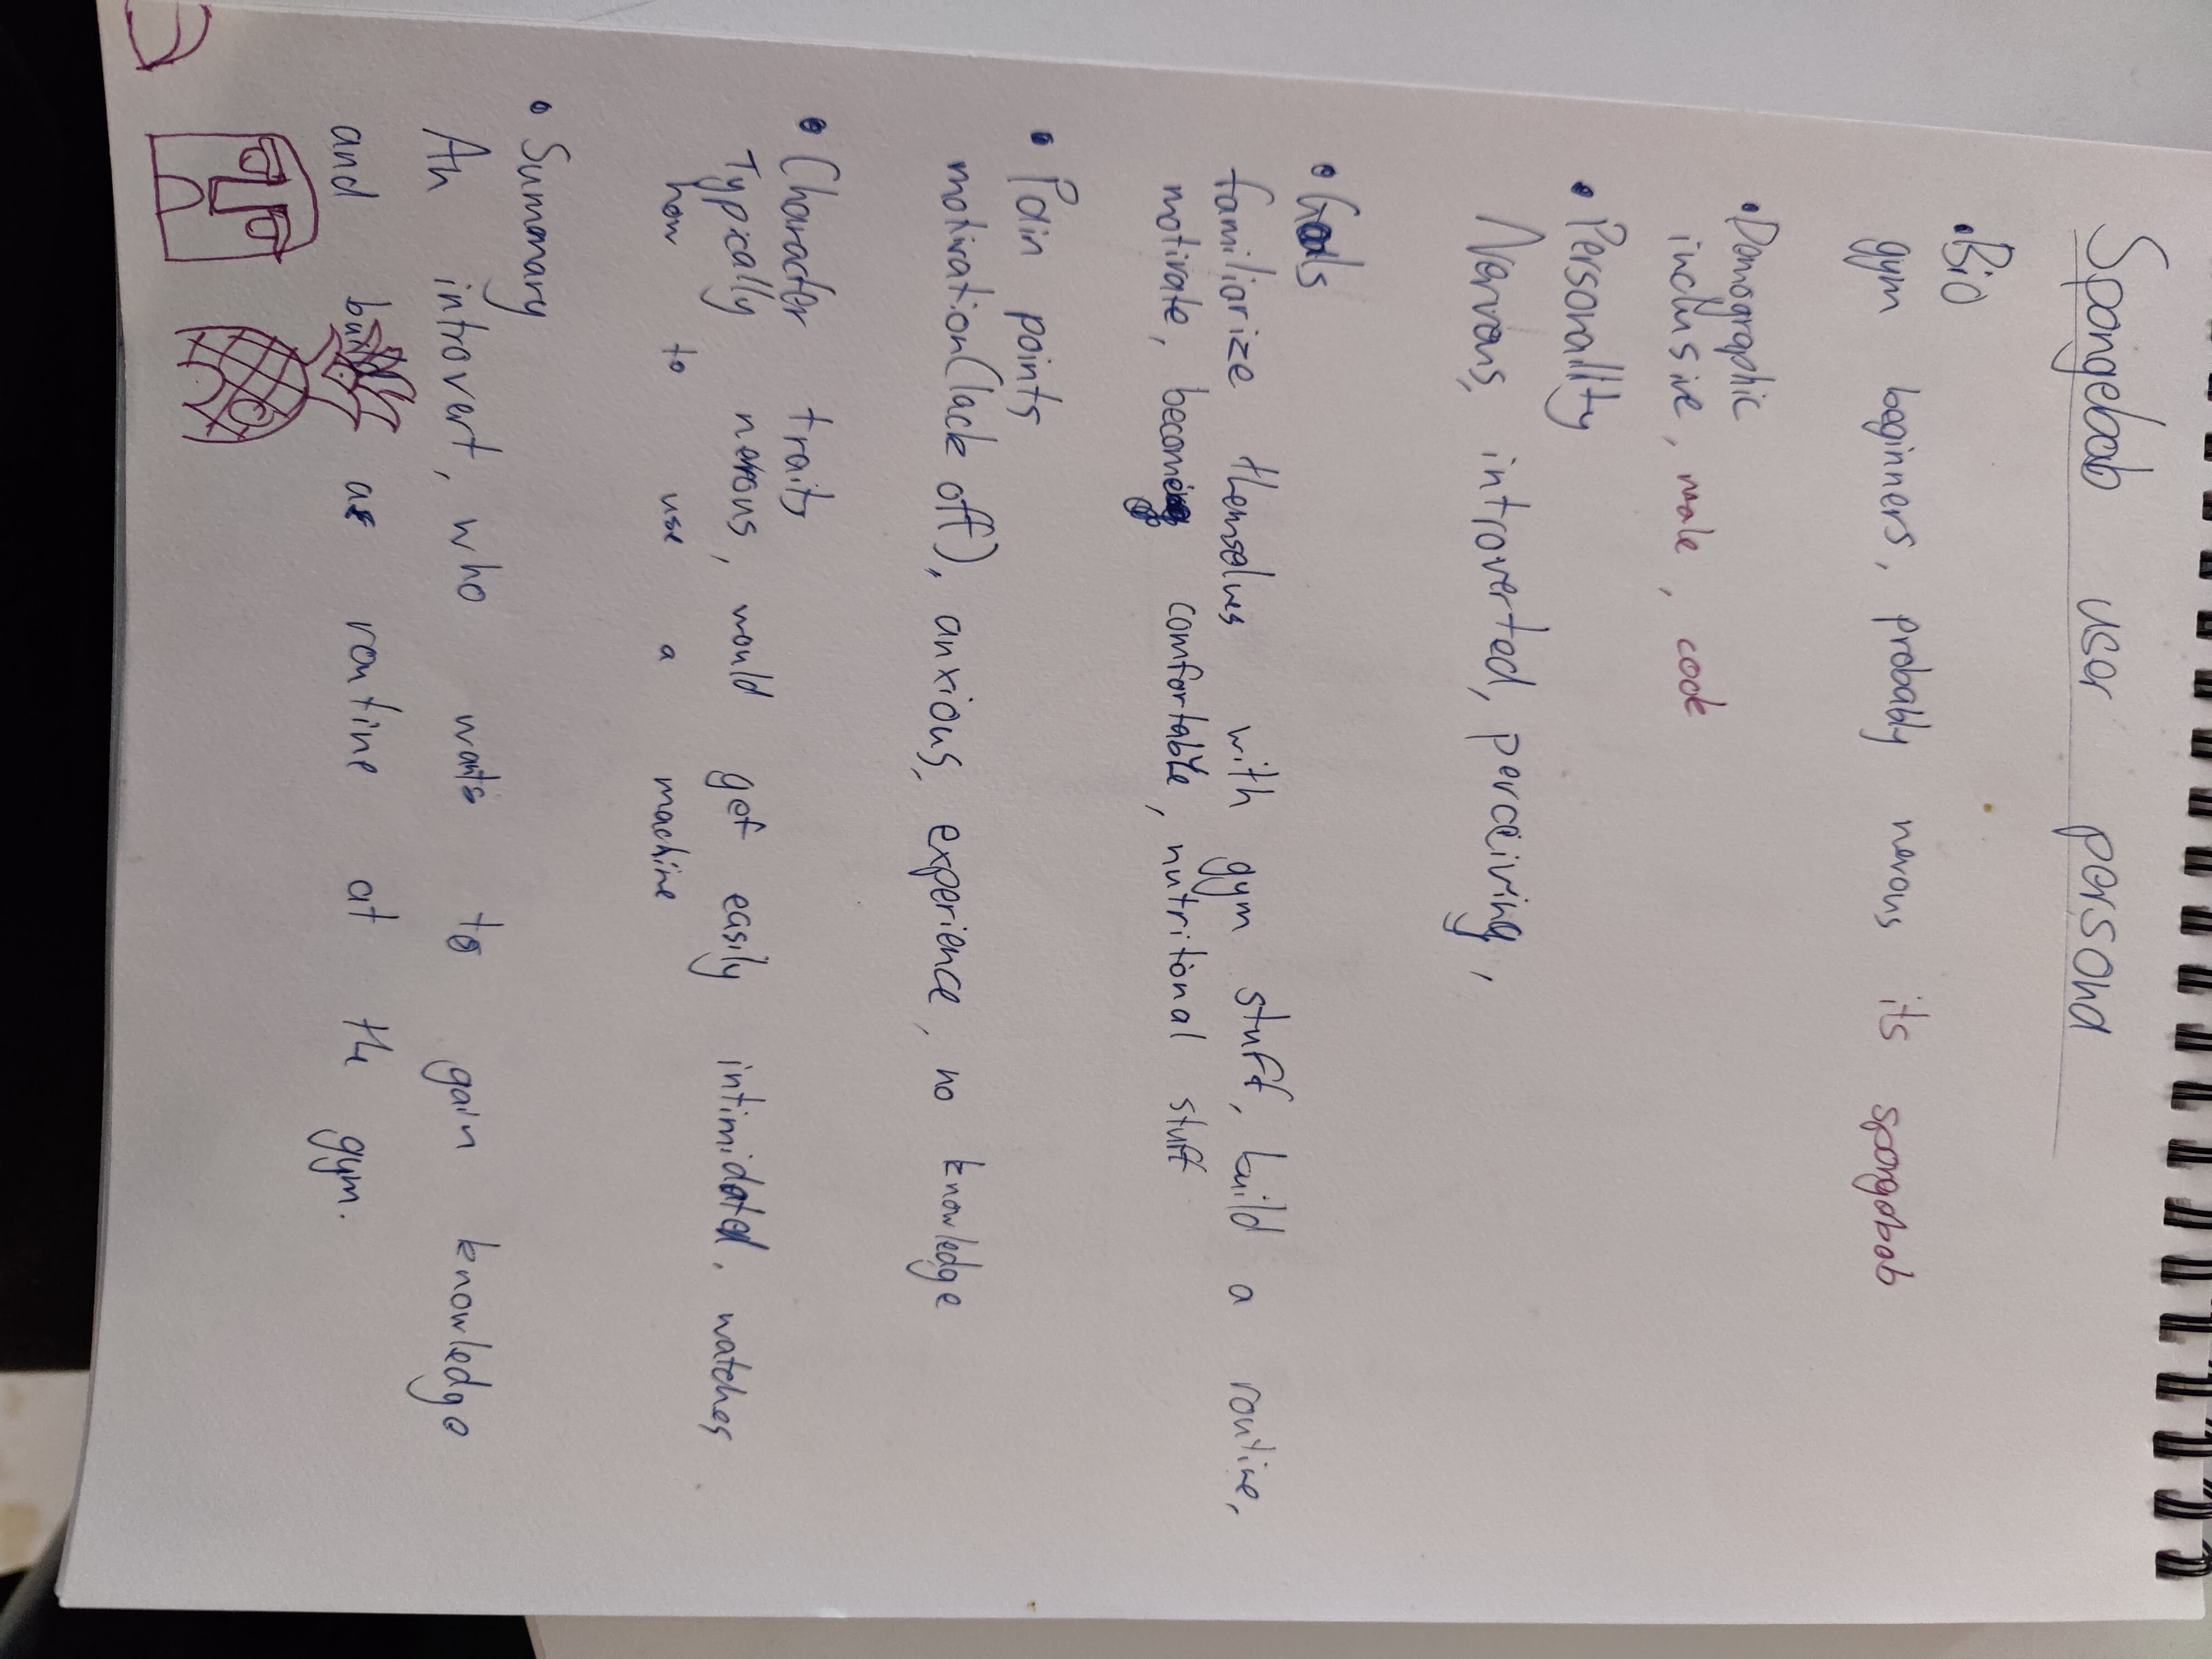 Spongebob user persona
•Bio
gym beginners, probably nervous its spongebob
•Demographic
inclusive, male, cook
• Personallity
Nervous, introverted, perceiving,
• Goals
familiarize themselves with gym stuff, build a routine,
motivate, becoming comfortable, nutritional stuff
• Pain points
motivation(lack off), anxious, experience, no knowledge
• Character traits
Typically nervous, would get easily intimidated, watches
how to use a machine
• Summary
An introvert, who wants to gain knowledge
and build a routine at the gym.